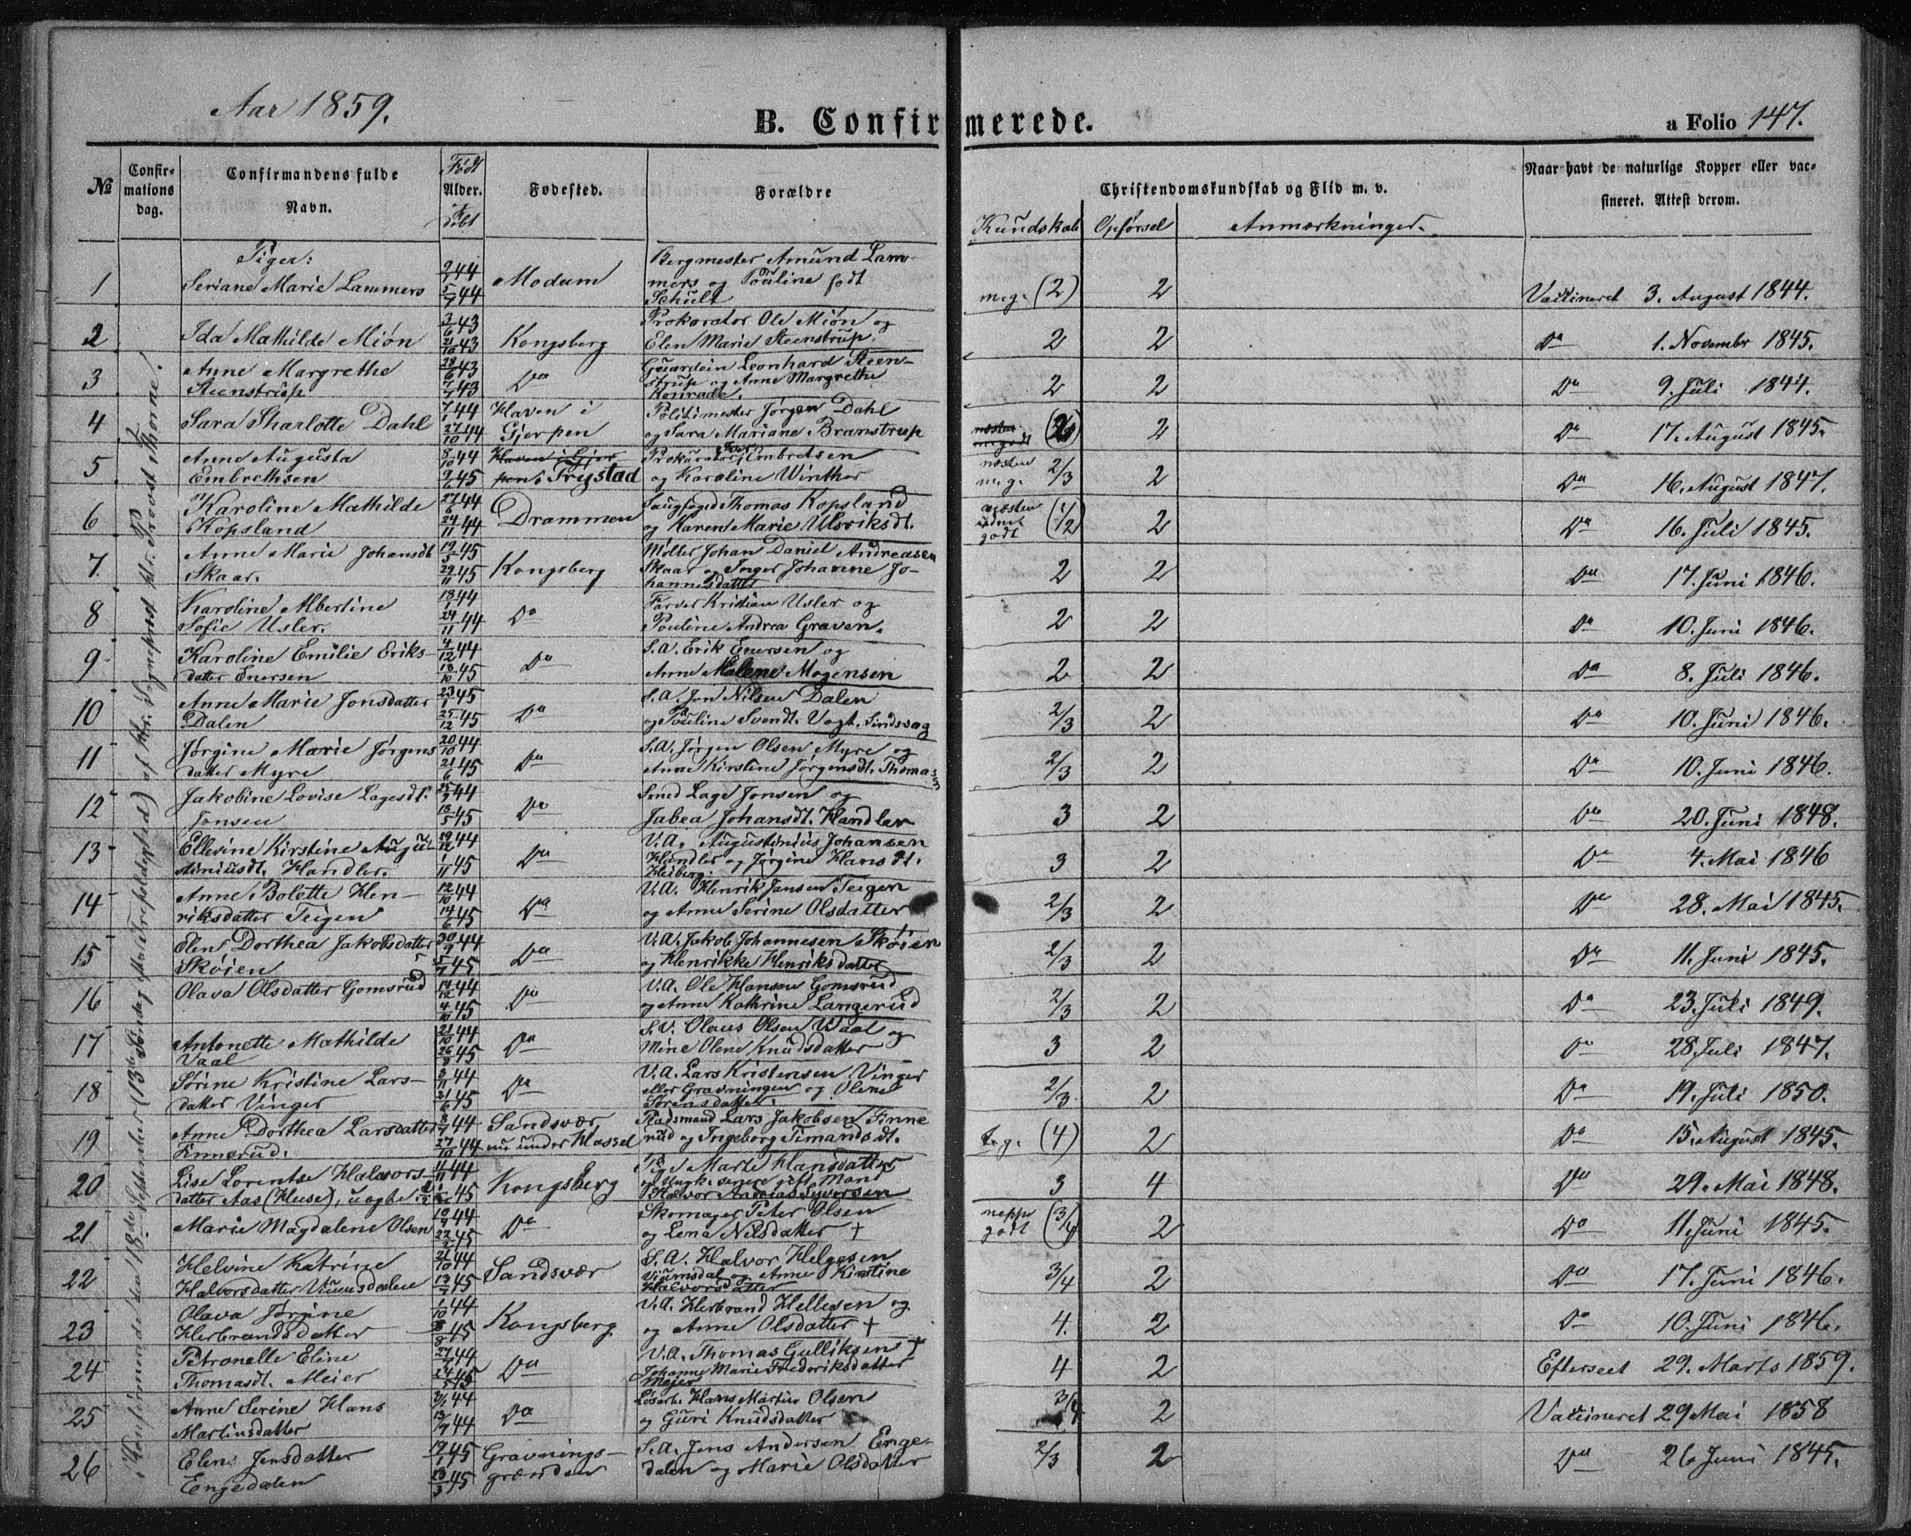 Aar 1859.
B. Confirmerede.
a Folio 147.
№
Confirmations dag.
Confirmandens fulde Navn.
Født
Alder.
Døbt
Fødested.
Forældre
Christendomskundskab og Flid m. v.
Kundskab Opførsel Anmærkninger.
Naar havt de naturlige Kopper eller vaccineret. Attest derom.
Konfirmerede den 18de September (13de Søndag efter Trefoldighed) af Hr. Sognepræst Hr. Provst Thorne.
Piger:
1 Seriane Marie Lammers 2/7 44 5/7 44 Modum Bergmester Amund Lammers og Pouline født Schult m.g. (2) 2 Vaccineret 3. August 1844.
2 Ida Mathilde Miøn 3/6 43 21/10 43 Kongsberg Prokurator Ole Miøn og Elen Marie Steenstrup. 2 2 Do 1. November 1845.
3 Anne Margrethe Steenstrup 28/6 43 7/7 43 Do Guardein Leonhard Steenstrup og Anne Margrethe Konrade. 2 2 Do 9. Juli 1844.
4 Sara Sharlotte Dahl 7/7 44 27/10 44 Haven i Gjerpen Politimester Jørgen Dahl og Sara Mariane Branstrup (2) 2 Do 17. August 1845.
5 Anne Augusta Embrethsen 8/10 44 9/6 45 Trystad Prokurator Embretsen og Karoline Winther næsten m.g. 2/3 2 Do 16. August 1847.
6 Karoline Mathilde Kopsland 27/6 44 24/11 44 Drammen Saugfoged Thomas Kopsland og Karen Marie Ulsriksdt. næsten udm. godt (1/2) 2 Do 16. Juli 1845.
7 Anne Marie Johansdt. Skaar. 19/5 45 29/11 45 Kongsberg Møller Johan Daniel Andreasen Skaar og Inger Johanne Johannesdatter 2 2 Do 17. Juni 1846.
8 Karoline Albertine Sofie Usler. 18/1 44 24/11 44 Do Farver Kristian Usler og Pouline Andrea Graven. 2 2 Do 10. Juni 1846.
9 Karoline Emilie Eriksdatter Enersen /12 44 /10 45 Do S.A. Erik Enersen og Anne Malene Mogensen 2 2 Do 8. Juli 1846.
10 Anne Marie Jonsdatter Dalen 23/1 45 25/12 45 Do S.A. Jon Nilsen Dalen og Pouline Svendt. Vogt. Sindsvag 2/3 2 Do 10. Juni 1846.
11 Jørgine Marie Jørgensdatter Myre 20/10 44 21/6 45 Do S.A. Jørgen Olsen Myre og Anne Kirstine Jørgensdt. Thomas 2/3 2 Do 10. Juni 1846.
12 Jakobine Lovise Lagesdt. Jonsen 25/9 44 18/5 45 Do Smed Lage Jonsen og Jabea Johansdt. Handler 3 2 Do 20. Juni 1848.
13 Ellevine Kirstine Augustiniusdt. Handler. 29/12 44 1/11 45 Do V.A. Augustinius Johansen Handler og Jørgine Hansdt. Heiberg. 3 2 Do 4. Mai 1846
14 Anne Bolette Henriksdatter Teigen 12/10 44 14/6 45 Do V.A. Henrik Jansen Teigen og Anne Serine Olsdatter 2/3 2 Do 28. Mai 1845.
15 Elen Dorthea Jakobsdatter Skøien 30/9 44 45 Do V.A. Jakob Johannesen Skøien og Henrikke Henriksdatter 2/3 2 Do 11. Juni 1845.
16 Olava Olsdatter Gomsrud 44 4/10 45 Do V.A. Ole Hansen Gomsrud og Anne Kathrine Langerud 2/3 2 Do 23. Juli 1849.
17 Antonette Mathilde Vaal 21/10 44 26/8 45 Do S.V. Olaus Olsen Vaal og Mine Olene Knudsdatter 3 2 Do 28. Juli 1847.
18 Sørine Kristine Larsdatter Vinger 8/11 44 21/6 45 Do V.A. Lars Kristensen Vinger eller Gravningen og Olene Sørensdatter. 2/3 2 Do 19. Juli 1850.
19 Anne Dorthea Larsdatter Finnerud. 8/7 44 27/10 44 Sandsvær nu under Hassel Pladsmand Lars Jakobsen Finnerud og Ingeborg Simansdt. t.g. (4) 2 Do 15. August 1845.
20 Lise Lorentse Halvorsdatter Aas (Huse), uægte 44 45 Kongsberg Pige Marte Hansdatter og Ungk. senere gift Mand Halvor Andreas Syversen 3 4 Do 29. Mai 1848.
21 Marie Magdalene Olsen 10/9 44 22/2 45 Do Skomager Peter Olsen og Lena Nilsdatter † neppe godt (3/4) 2 Do 11. Juni 1845.
22 Helvine Katrine Halvorsdatter Viumsdalen 21/10 44 13/7 45 Sandsvær S.A. Halvor Helgesen Viumsdal og Anne Kirstine Halvorsdatter 3/4 2 Do 17. Juni 1846.
23 Olava Jørgine Herbrandsdatter 1/10 44 45 Kongsberg V.A. Herbrand Hellesen og og Anne Olsdatter † 4. 2 Do 10. Juni 1846.
24 Petronelle Eline Thomasdt. Meier 27/7 44 45 Do V.A. Thomas Gulliksen † Johanne Marie Frederiksdatter Meier 4 2 Efterseet 29. Marts 1859.
25 Anne Serine Hans Martinsdatter 44 44 Do Løsarb. Hans Martin Olsen og Guri Knudsdatter 3/4 2 Vaccineret 29 Mai 1858
26 Elen Jensdatter Engedalen 19/1 45 13/3 45 Gravningsgrænden S.A. Jens Andersen Engedalen og Marie Olsdatter 2/3 2 Do 26 Juni 1845.